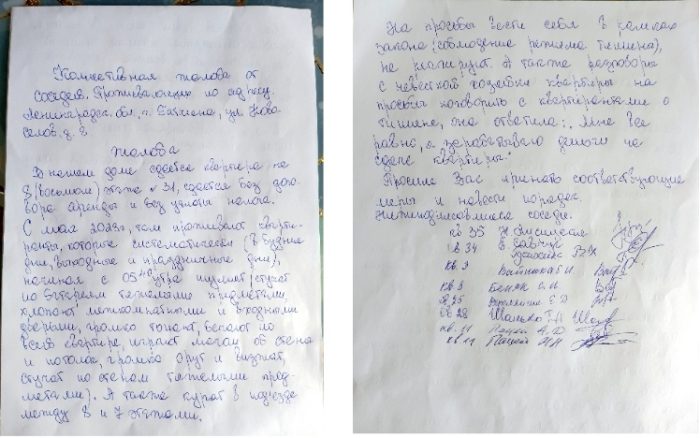 Коллективная жалоба от
соседей. Проживающих по адресу,
Ленинградск. обл., г. Гатчина, ул Ново
селов, д. 8
Жалоба
В нашем доме сдается квартира на
8 (восьмом) этаже № 31, сдается без дого-
вора аренды и без уплаты налога.
С мая 2023г, там проживают кварти-
ранты, которые систематически (в будние
дни, выходные и праздничные дни),
начиная с 05⁰⁰ утра шумят (стучат
по батареям тяжелыми предметами,
хлопают межкомнатными и входными
дверьми, громко топают, бегают по
всей квартире, играют мячом об стены
и потолок, громко орут и визжат,
стучат по стенам тяжелыми пред-
метами). А также курят в подъезде
между 8 и 7 этажами.
На просьбы вести себя в рамках
закона (соблюдение режима тишины),
не реагируют. А также разговоры
с хозяйкой квартиры на
просьбы поговорить с квартирантами о
тишине, она ответила: "Мне все
равно, я зарабатываю деньги на
сдаче квартиры."
Просим Вас принять соответствующие
меры и навести порядок.
Нижеподписавшиеся соседи.
кв 35
кв 34 Е. Савчук
кв. 9
кв. 9
кв 25
кв 28 Шалько Т.А
кв. 11
кв. 11